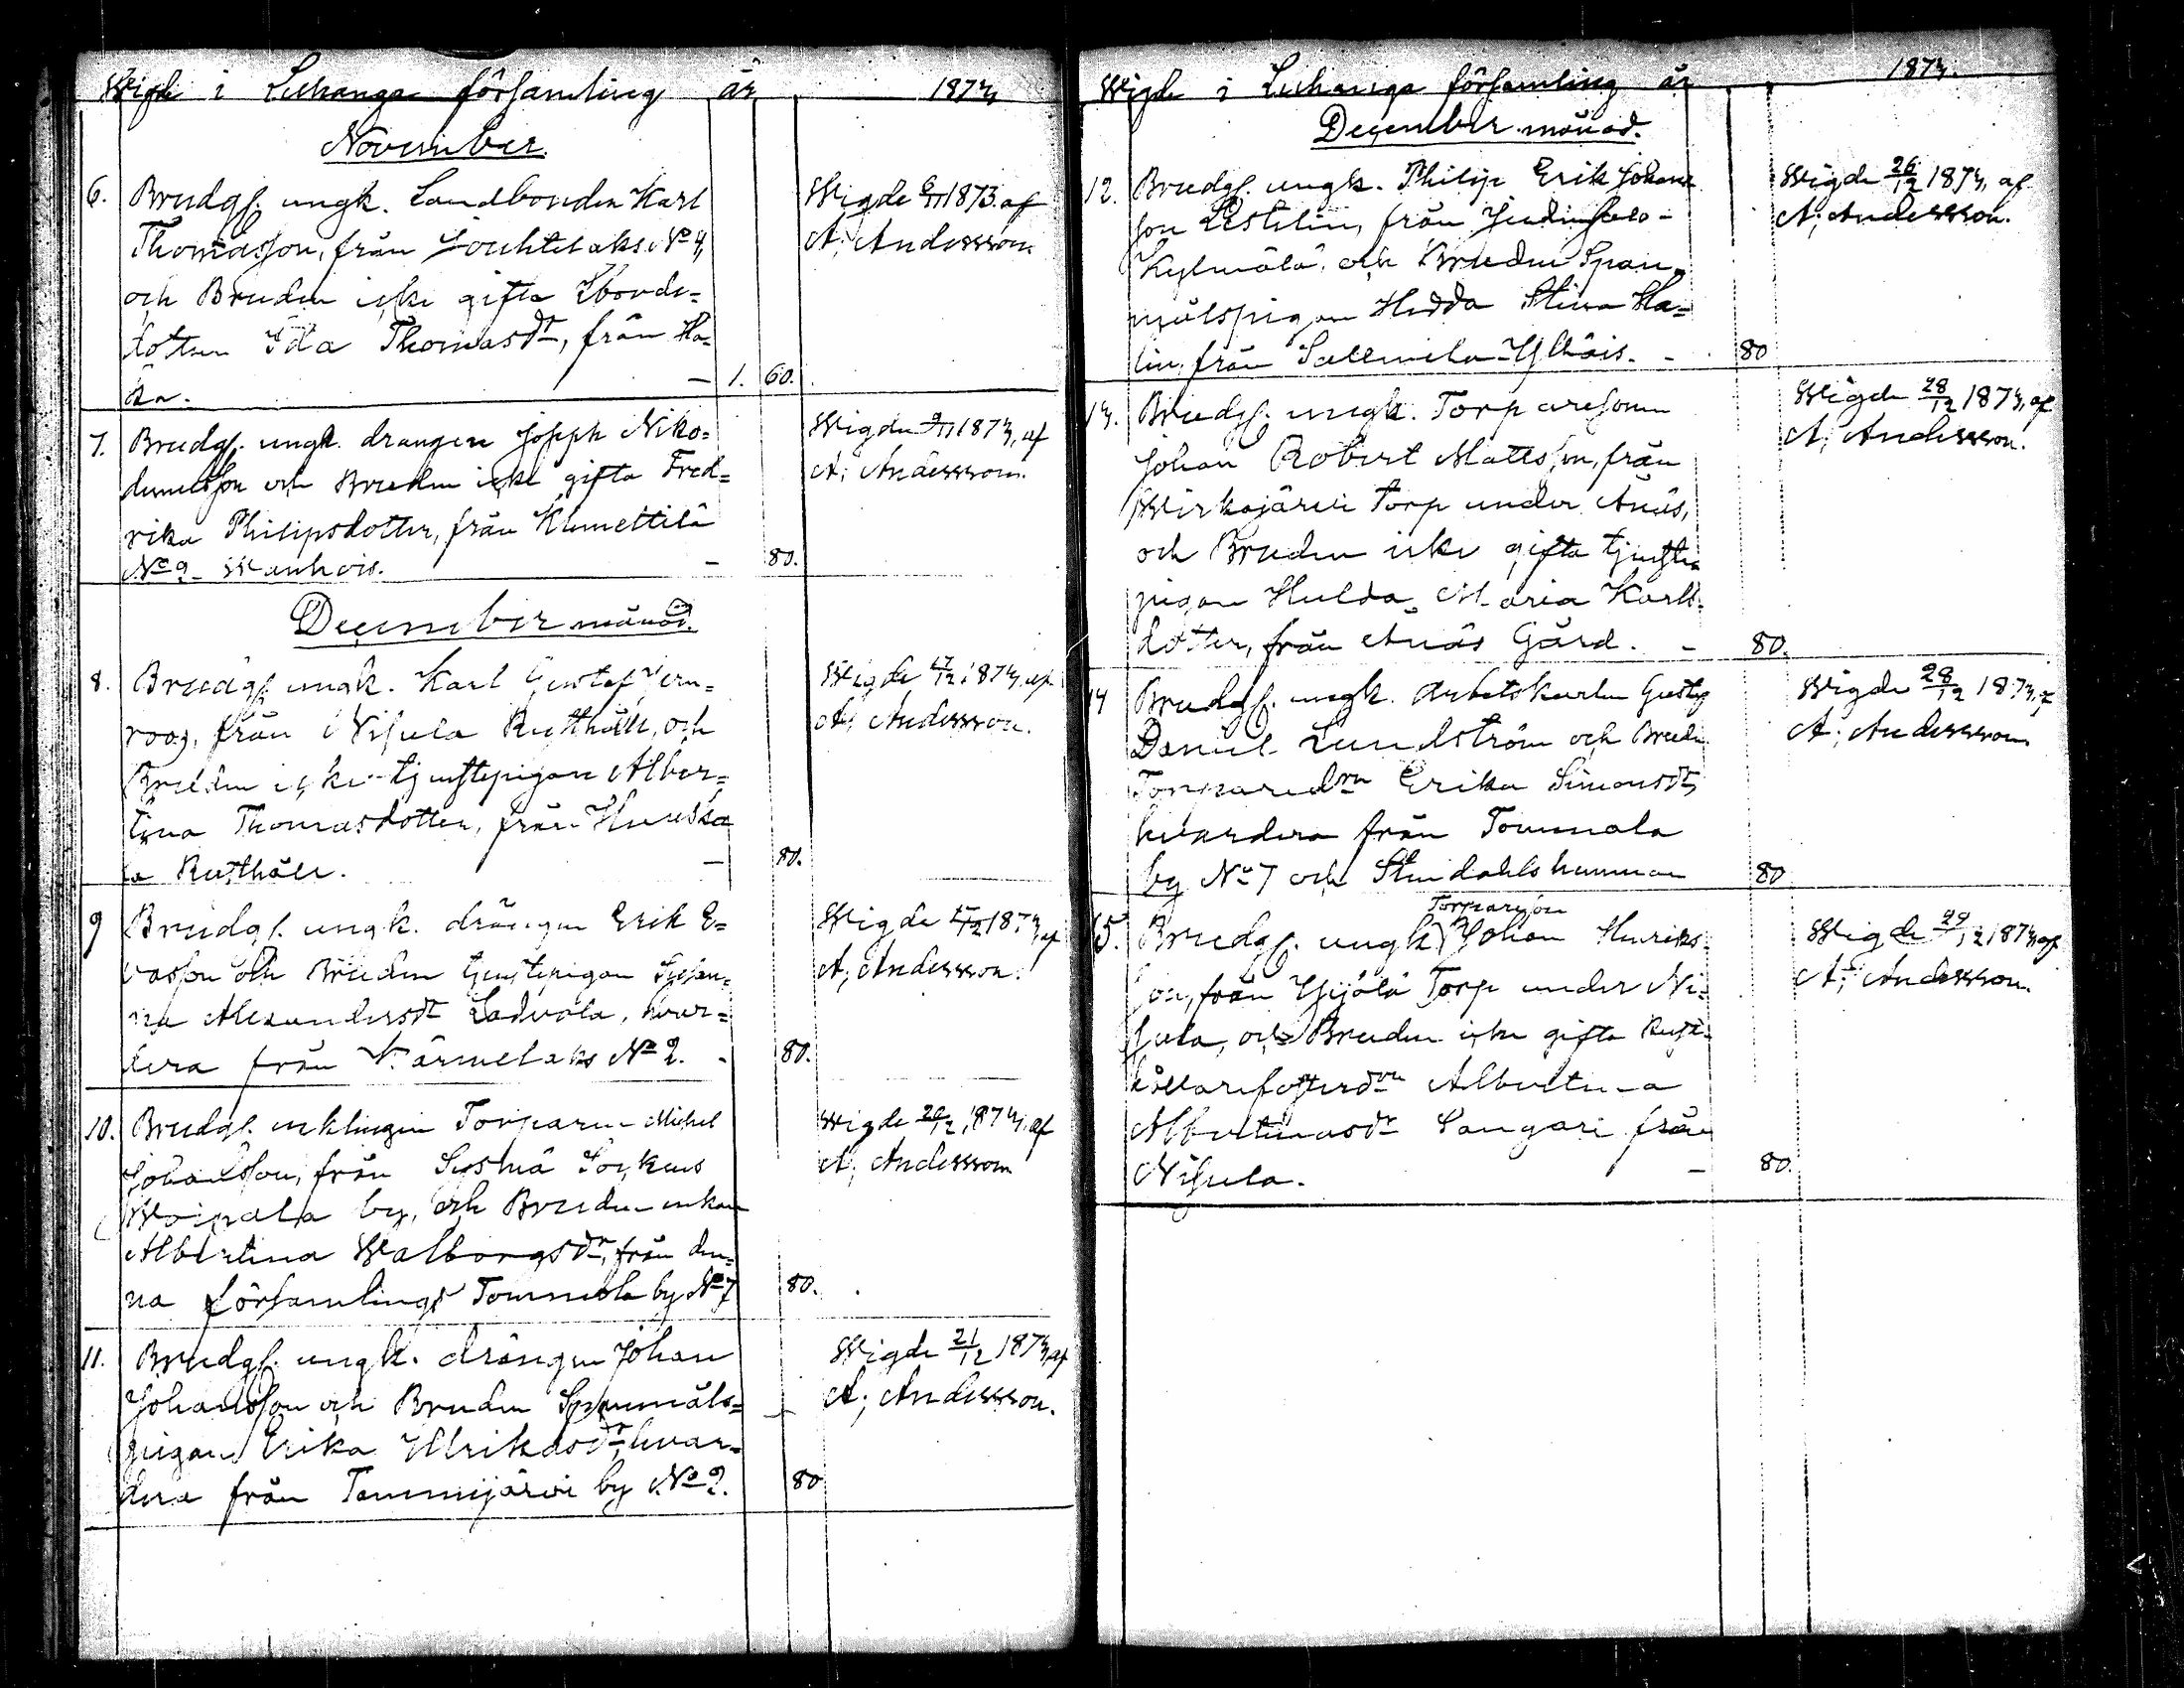 Wigde i Luhanga församling år 1873
November.
6. Brudgſ. ungk. Landbonden Karl
Thomasſon, från Louhtelaks No 4,
och Bruden icke gifta Ebonde-
dottren Ida Thomasdr, från Ha-
ka. — 1. 60.
Wigde 6/11 1873. af
A; Andersson.
7. Brudgſ. ungk. drängen Joseph Niko-
demusſon och Bruden icke gifta Fred-
rika Philipsdotter, från Klemettilä
No 2 Wanhois. - 80.
Wigde 9/11 1873, af
A; Andersson.
December månad.
8. Brudgſ. ungk. Karl Gustaf Jern-
roos, från Niſula Rusthåll, och
Bruden icke tjenstepigan Alber-
tina Thomasdotter, från
la Rusthåll. — 80.
Wigde /12 1873, af
A; Andersson.
9 Brudgſ. ungk. drängen Erik E-
vasſon och Bruden tjenstepigan Susan-
na Alexandersdr Ladvola, hvar-
dera från Wärmelaks No 2. - 80.
Wigde /12 1873, af
A; Andersson.
10. Brudgſ. enklingen Torparen Michel
Johansſon, från Sysmä Sockens
Woipala by, och Bruden enkan
Albertina Walborgsdr, från den-
na församlings Tommola by No 7 80.
Wigde 20/12 1873, af
A; Andersson
11. Brudgſ. ungk. drängen Johan
Johansſon och Bruden Spanmåls-
pigan Erika Ulrikasdr, hvar-
dera från Tammijärvi by No 2. 80
Wigde 21/12 1873, af
A; Andersson.
Wigde i Luhanga församling år 1873.
December månad.
12. Brudgſ. ungk. Philip Erik Johans-
ſon Lestelin, från Judinsalo-
Kylmälä, och Bruden Span-
målspigan Hedda Stina Ha-
lin, från Salmela-Ylhäis. - 80
Wigde 26/12 1873, af
A; Andersson.
13. Brudgſ. ungk. Torparesonen
Johan Robert Mattsſon, från
Wirkajärvi Torp under Anäs,
och Bruden icke gifta tjenste-
pigan Hulda Maria Karls-
dotter, från Anäs Gård. - 80.
Wigde 28/12 1873, af
A; Andersson.
14 Brudgſ. ungk. Arbetskarlen Gustaf
Daniel Lundström och Bruden
Torparedrn Erika Simonsdr,
hvardera från Tommola
by No 7 och Stendahls hemman 80
Wigde 28/12 1873, af
A; Andersson
15. Brudgſ. ungk. Torpareson Johan Henriks-
ſon, från Yijälä Torp under Ni-
ſula, och Bruden icke gifta Rust-
hållarefosterdrn Albertina
Albertinasdr Sangari från
Niſula. - 80.
Wigde 29/12 1873, af
A; Andersson.